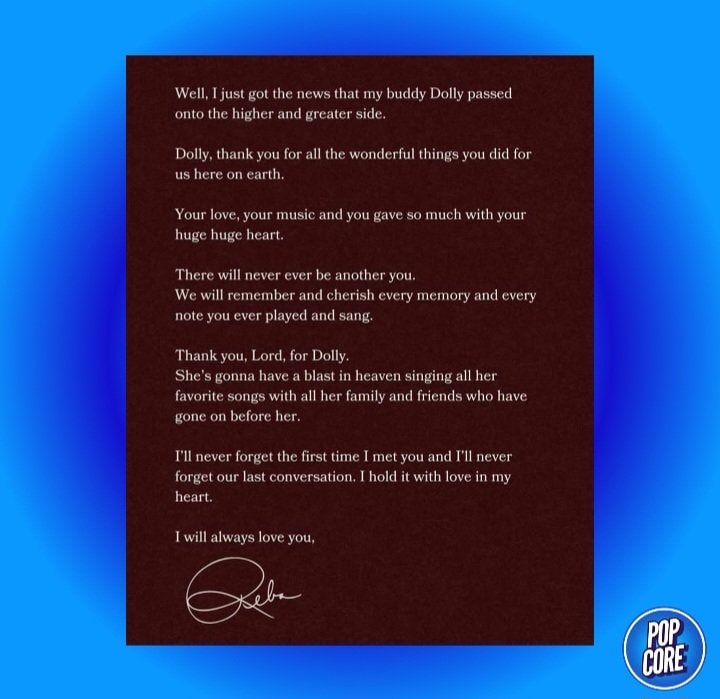 Well, I just got the news that my buddy Dolly passed
onto the higher and greater side.
Dolly, thank you for all the wonderful things you did for
us here on earth.
Your love, your music and you gave so much with your
huge huge heart.
There will never ever be another you.
We will remember and cherish every memory and every
note you ever played and sang.
Thank you, Lord, for Dolly.
She's gonna have a blast in heaven singing all her
favorite songs with all her family and friends who have
gone on before her.
I'll never forget the first time I met you and I'll never
forget our last conversation. I hold it with love in my
heart.
I will always love you,
Reba
POP
CORE